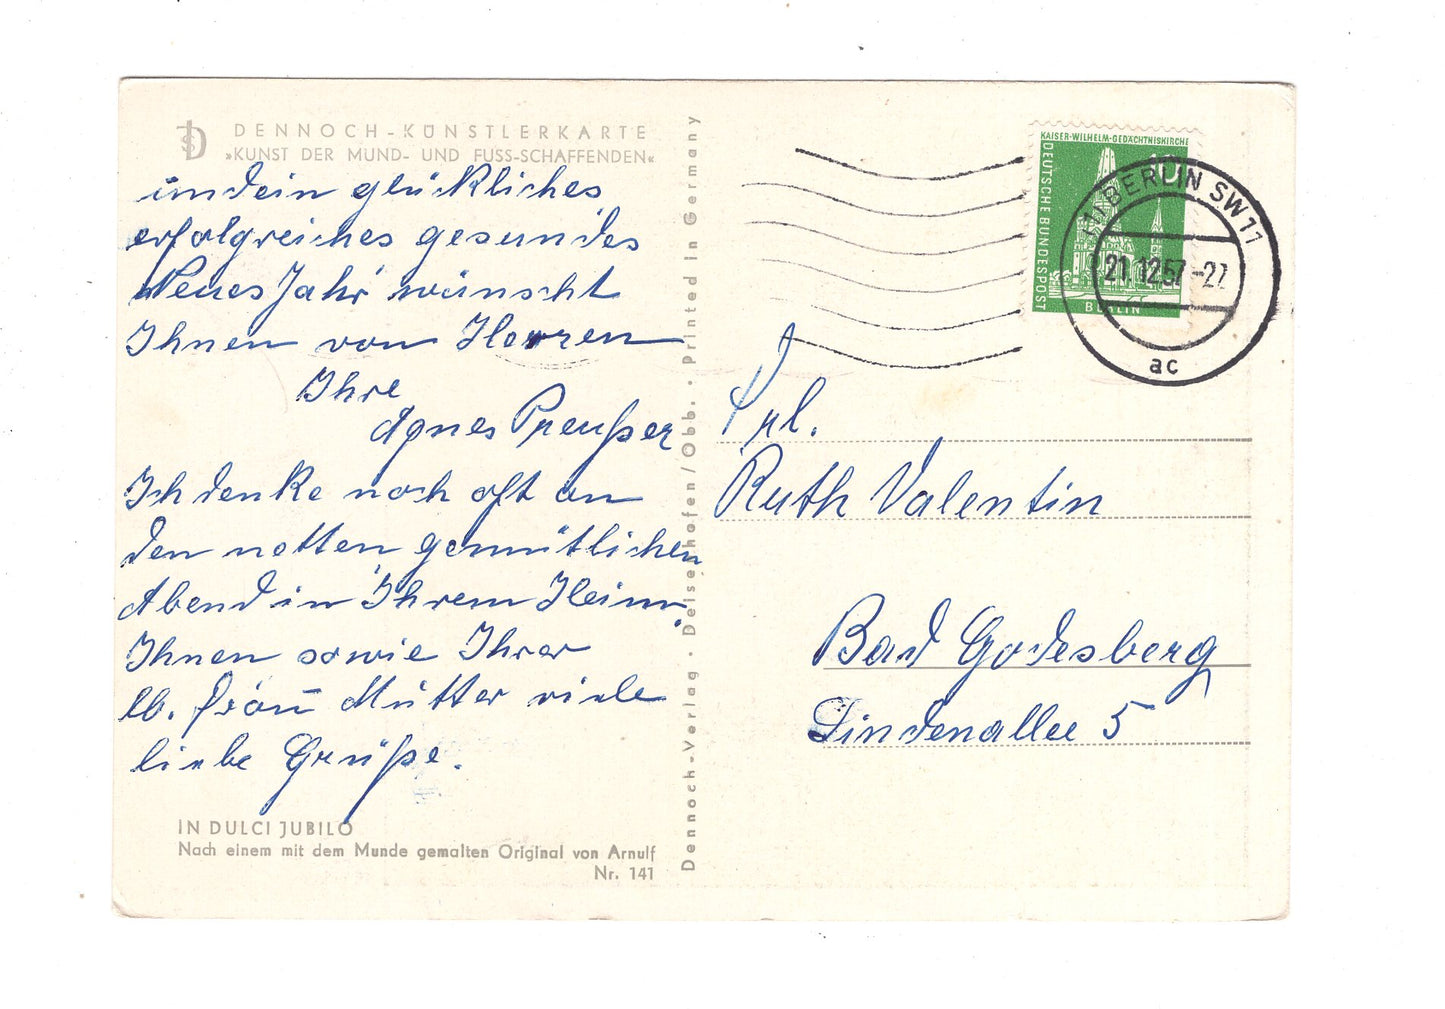 DENNOCH-KÜNSTLERKARTE
»KUNST DER MUND- UND FUSS-SCHAFFENDEN«
und ein glückliches
erfolgreiches gesundes
Neues Jahr wünscht
Ihnen von Herzen
Ihre
Agnes Preußer
Ich denke noch oft an
den netten gemütlichen
Abend in Ihrem Heim.
Ihnen sowie Ihrer
lb. Frau Mutter viele
liebe Grüße.
IN DULCI JUBILO
Nach einem mit dem Munde gemalten Original von Arnulf
Nr. 141
Dennoch-Verlag · Deisenhofen/Obb. · Printed in Germany
KAISER-WILHELM-GEDÄCHTNISKIRCHE
DEUTSCHE BUNDESPOST
BERLIN
10
BERLIN SW 11
21.12.57
ac
Frl.
Ruth Valentin
Bad Godesberg
Lindenallee 5